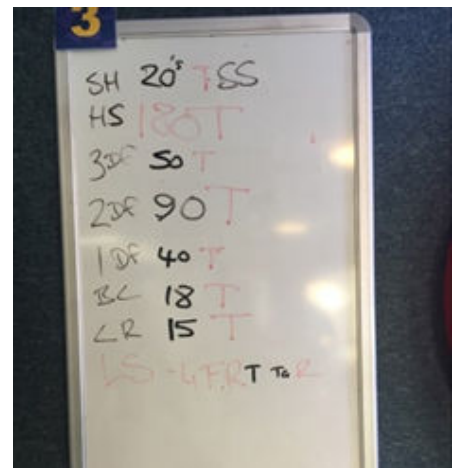 3
SH 20's T SS
HS 180 T
3DF 50 T
2DF 90 T
1DF 40 T
BC 18 T
LR 15 T
LS T To R